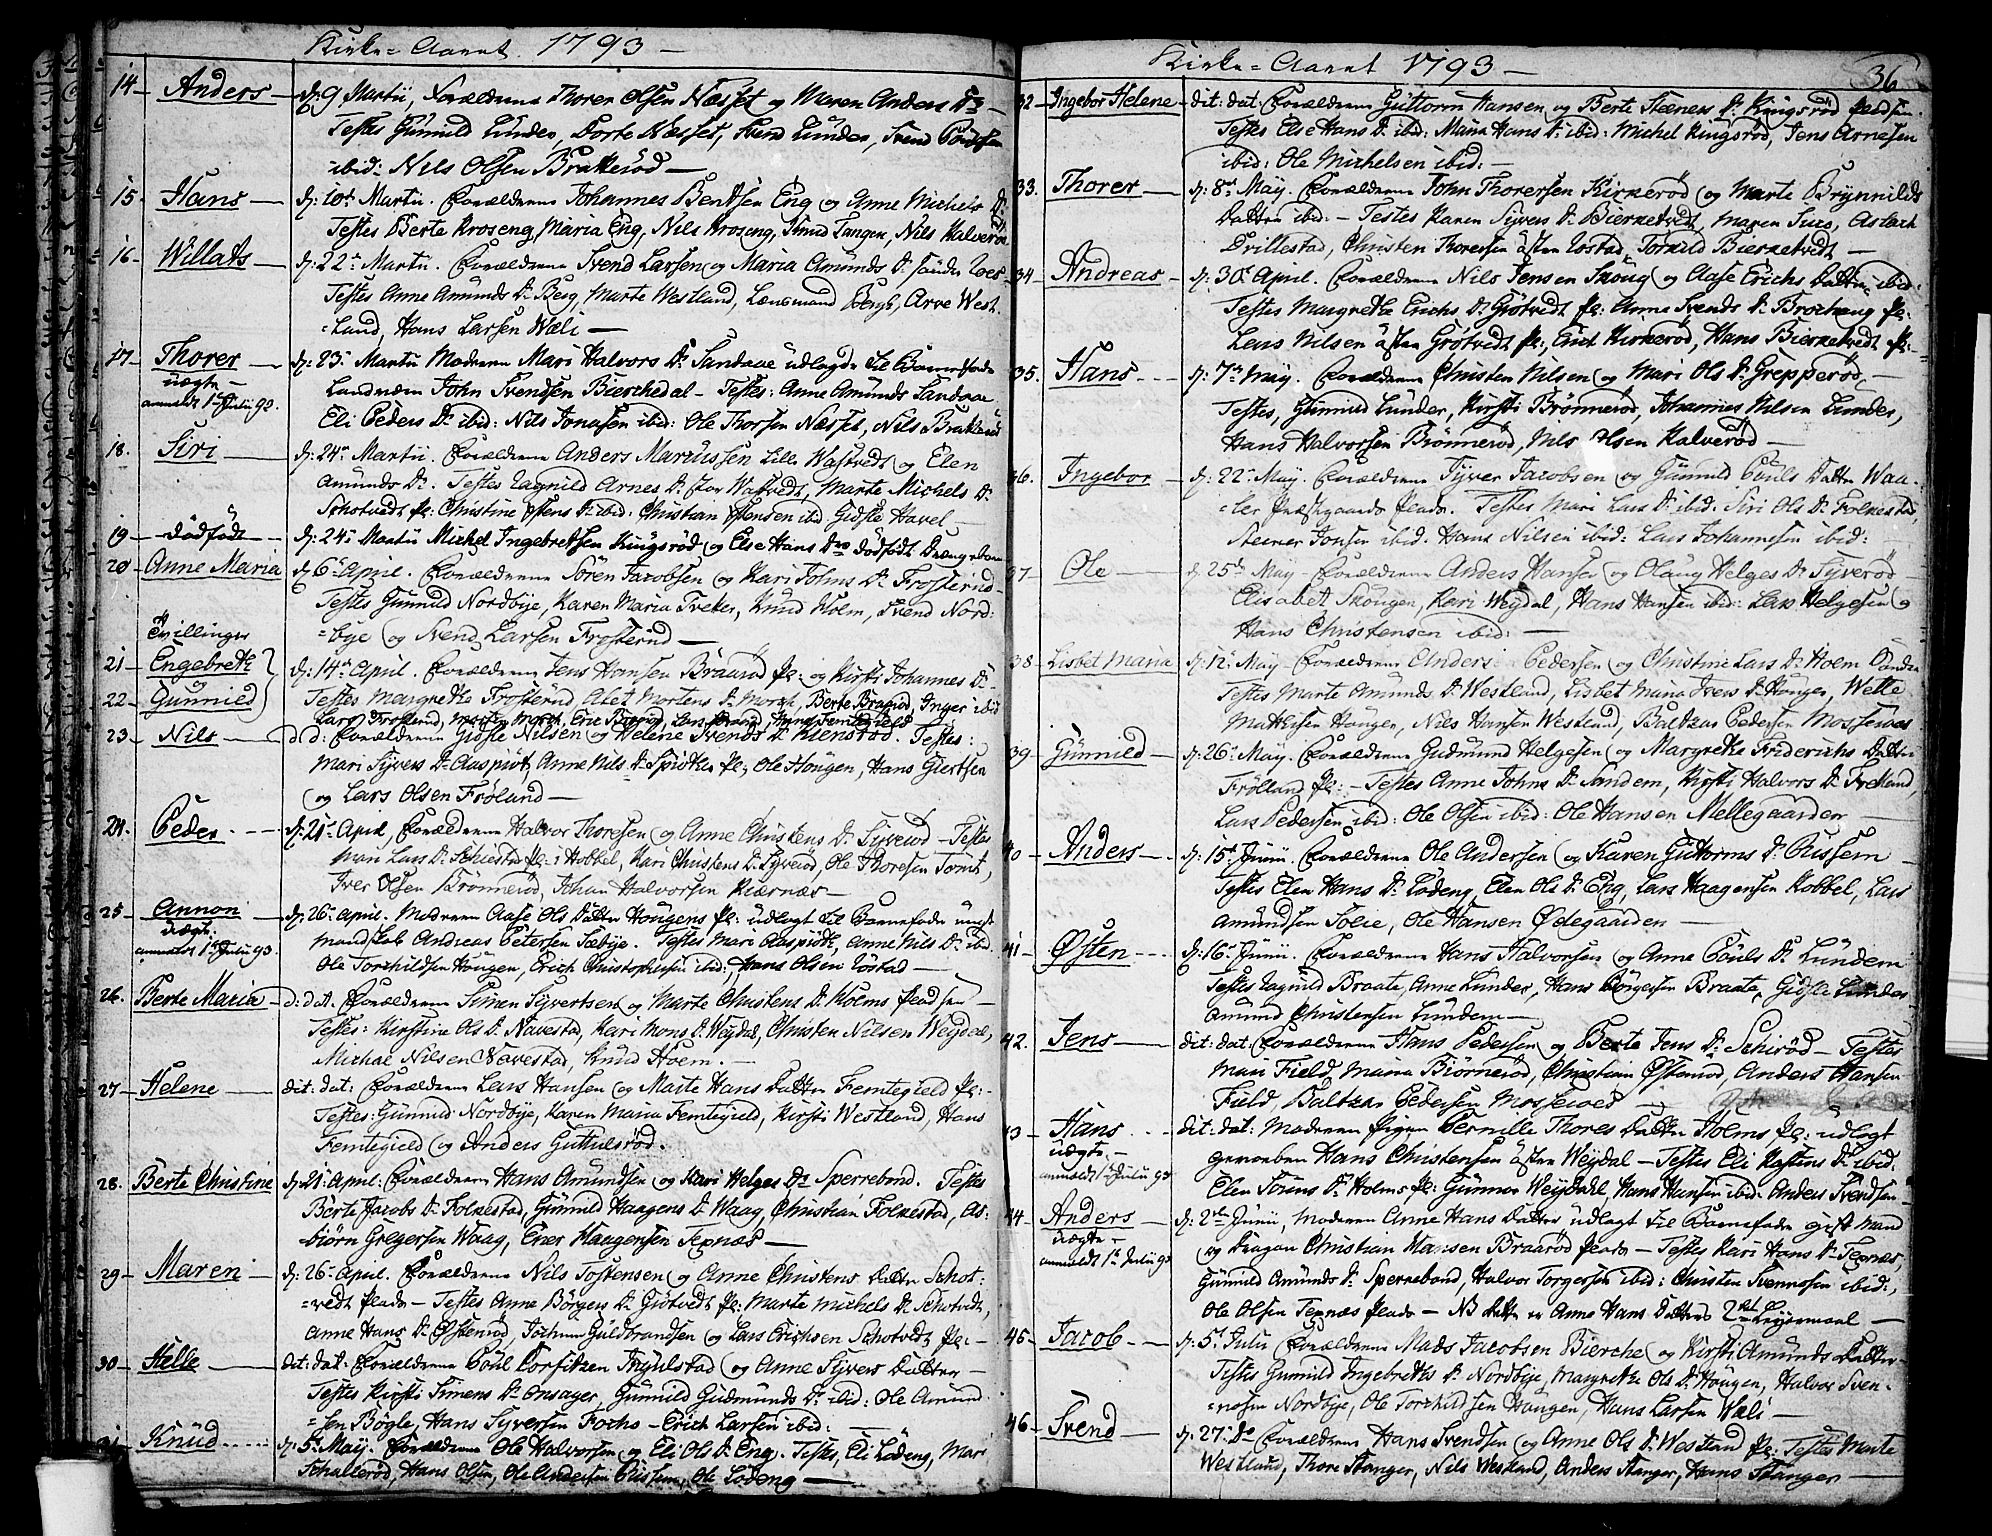 Kirke-Aaret 1793 —
14 — Anders — d: 9 Martii, Forældrene Thorer Olsen Næsset og Maren Anders Dr
Testes Gunnild Lunder, Dorte Næsset, Svend Lunder, Svend Poulsen
ibid: Nils Olsen Brakerød —
15 — Hans — d: 10de Martii. Forældrene Johannes Bentsen Eng og Anne Michels Dr
Testes Berte Kroseng, Maria Eng, Nils Kroseng, Knud Tangen, Nils Kalverøe
16 — Willats — d: 22de Martii. Forældrene Svend Larsen og Maria Amunds Dr søndre Loes
Testes Anne Amunds Dr Berg, Marte Westland, Lænsmand Bergh, Arve West
=Land, Hans Larsen Wæli —
17 — Thorer — d: 23de Martii Moderen Mari Halvors Dr Sandaae udlagde til Barnefader
uægte — Landværn John Svendsen Bierchedal — Testes: Anne Amunds Sandaae
anmeldt 1ste Julii 93. Eli Peders Dr ibid: Nils Jonasen ibid: Ole Thorsen Næsset, Nils Brakerød
18. Siri — d: 24de Martii. Forældrene Anders Marcussen Lille Watvedt og Elen
Amunds Dr. Testes Lagnild Arnes Dr stor Watvedt, Marte Michels Dr
Schotvedt pl: Christine Ostens Dr ibid: Christian Ostensen ibid Gidsle Havel —
19 — dødfødt — d: 24de Martii Michel Ingebretsen Kingsrød og Else Hans Dr dødfødt Drengebarn
20 — Anne Maria d. 6te April. Forældrene Søren Jacobsen og Kari Johns Dr Frosterud —
Testes Gunnild Nordbye, Karen Maria Treker, Knud Holm, Svend Nord:
=bye og Svend Larsen Frosterud —
Tvillinger
21 — Engebreth d: 14de April. Forældrene Jens Hansen Braarud pl: og Kirsti Johannes Dr
og
22 — Gunnild Testes Margrethe Frosterud Abet Mortens Dr Morch, Berte Brarud, Inger ibid
Lars Frosterud, Morten Morch, Eric Brarud, Lars Brarud, Hans Femtegield
23 — Nils — d: d: Forældrene Gidsle Nilsen og Helene Svends Dr Kienstad. Testes:
Mari Syvers Dr Aaspiøt, Anne Nils Dr Spiøtten pl:, Ole Hougen, Hans Giertsen
og Lars Olsen Frøland —
24. Peder — d: 21de April, Forældrene Halvor Thoresen og Anne Christens Dr Syverød — Testes
Mari Lars Dr Schiestad pl: i Hobbel, Kari Christens Dr Syverød, Ole Thoresen Tomt,
Iver Olsen Brønnerød, Johan Halvorsen Kiærnæs —
25 — Annon d: 26de April. Moderen Aase Ols Datter Hougens pl: udlagt til Barnefader ungt
uægte: mandskab Andreas Petersen Sæbye. Testes Mari Aaspiøt, Anne Nils Dr ibid.
anmeldt 1ste Julii 93. Ole Torchildsen Hougen, Erich Christophersen ibid:, Hans Olsen Løstad —
26. Berte Maria — d: dat. Forældrene Simen Syvertsen og Marte Christens Dr Holms pladsen —
Testes: Kirstine Ols Dr Navestad, Kari Mons Dr Weydal, Christen Nilsen Weydal,
Michal Nilsen Navestad, Knud Hoem. —
27 — Helene — dit: dat: Forældrene Lars Hansen og Marte Hans Datter Femtegield pl:
Testes: Gunnild Nordbye, Karen Maria Femtegield, Kirsti Westland, Hans
Femtegield og Anders Guttulsrød.
28. Berte Christine d: 21 April: Forældrene Hans Amundsen og Kari Helges Dr Sperrebond. Testes
Berte Jacobs Dr Folkestad, Gunnild Haagens Dr Waag, Christian Folkestad, As=
biørn Gregersen Waag, Ener Haagensen Texnæs —
29 — Maren — d: 26de April. Forældrene Nils Tostensen og Anne Christens Datter Schot=
=vedt plads — Testes Anne Børgers Dr Giøtvedt pl: Marte Michels Dr Schotvedt,
Anne Hans Dr Ostenrød, Jochum Guldbrandsen og Lars Erichsen Schotvedt pl: —
30 — Helle — dit: dat: Forældrene Poul Torfitzen Ingulstad og Anne Syvers Datter —
Testes Kirsti Simens Dr Onsager, Gunnild Gudmunds Dr ibid: Ole Amund=
=sen Bøgle, Hans Syversen Fochs — Erich Larsen ibid: —
31 — Knud — d: 5te May. Forældrene Ole Halvorsen og Eli Ols Dr Eng. Testes, Eli Lodeng, Mari
Schallerød, Hans Olsen, Ole Andersen Pussem, Ole Lodeng —
Kirke-Aaret 1793 — 36
32 — Ingebor Helene — dit: dat. Forældrene Guttorm Hansen og Berte Steners Dr Kingsrød pladsen.
Testes Else Hans Dr ibid: Maria Hans Dr ibid: Michel Kingsrød, Jens Arnesen
ibid: Ole Michelsen ibid: —
33. Thorer — d: 8de May. Forældrene John Thorersen Kirkerød og Marte Brynnilds
Datter ibid: — Testes Karen Syvers Dr Bierketvedt, Maren Sues, Aslach
Drillestad, Christen Thoresen østre Løstad, Torkild Bierketvedt —
34 — Andreas — d: 30te April. Forældrene Nils Jensen Skoug og Aase Erichs Datter ibid:
Testes Margrethe Erichs Dr Grøtvedt pl: Anne Svends Dr Brocheng pl:
Lars Nilsen østre Grøtvedt pl:, Erich Kirkerød, Hans Bierketvedt pl: —
35. Hans — d: 7de May. Forældrene Christen Nilsen og Mari Ols Dr Grepperød —
Testes, Gunnild Lunder, Kirsti Brønnerød, Johannes Nilsen Lunder,
Hans Halvorsen Brønnerød, Nils Olsen Kalverød —
36. Ingebor — d: 22de May. Forældrene Syver Jacobsen og Gunnild Pouls Datter Waa=
=ler Præstgaards plads. Testes Mari Lars Dr ibid. Siri Ols Dr Folkestad,
Stener Jonsen ibid. Hans Nilsen ibid: Lars Johannesen ibid: —
37 — Ole — d. 25de May — Forældrene Anders Hansen og Olaug Helges Dr Syverød —
Elisabet Skougen, Kari Weydal, Hans Hansen ibid: Lars Helgesen og
Hans Christensen ibid: —
38 — Lisbet Maria d: 12te May — Forældrene Anders Pedersen og Christine Lars Dr Hoem
Testes Marte Amunds Dr Westland, Lisbet Maria Ivers Dr Houger, Wette
Mathisen Hougen, Nils Hansen Westland, Baltzar Pedersen Mosseroes
39 — Gunnild — d: 26de May. Forældrene Gudmund Helgesen og Margrethe Friderichs Datter
Frølland pl: — Testes Anne Johns Dr Sandem, Kirsti Halvors Dr Frølland,
Lars Pedersen ibid: Ole Olsen ibid: Ole Hansen Mellegaarden —
40 — Anders — d: 15de Junii. Forældrene Ole Andersen og Karen Guttorms Dr Pussem —
Testes Elen Hans Dr Lodeng, Elen Ols Dr Eng, Lars Haagensen Kobbel, Lars
Amundsen Solie, Ole Hansen Ødegaarden —
41 — Østen — d: 16de Junii. Forældrene Hans Halvorsen og Anne Pouls Dr Lundem
Testes Lagnild Braate, Anne Lunder, Hans Børgersen Braate, Gidsle Lunder
Amund Christensen Lundem —
42. Jens — dit: dat: Forældrene Hans Pedersen og Berte Jens Dr Schirød — Testes
Mari Field, Maria Biørnerød, Christian Ostenrød, Anders Hansen
Field, Baltzar Pedersen Mossewed —
43 — Hans — dit: dat: Moderen pigen Pernille Thores Datter Holms pl: udlagt
uægte. — gevorben Hans Christensen østre Weydal — Testes Eli Hastens Dr ibid.
anmeldt 1ste Julii 93 Elen Torins Dr Holms pl: Gunnor Weydahl, Hans Hansen ibid: Anders Svendsen —
44 — Anders — d: 2den Junii, Moderen Anne Hans Datter udlagt til Barnefader gift Mand
uægte — og Dragon Christian Hansen Braarød plads — Testes Kari Hans Dr Texnæs,
anmeldt 1ste Julii 93 Gunnild Amunds Dr Sperrebond, Halvor Torgersen ibid: Christen Svennesen ibid:,
Ole Olsen Texnæs plads — NB dette er Anne Hans Datters 2det Leyermaal —
45 — Jacob — d: 5te Julii Forældrene Mads Jacobsen Bierche og Kirsti Amunds Datter —
Testes Gunnild Ingebreths Dr Nordbye, Margrethe Ols Dr Hougen, Halvor Sven=
=nesen Nordbye, Ole Torchildsen Hougen, Hans Larsen Wæli —
46 — Svend — d: 27de Do Forældrene Hans Svendsen og Anne Ols Dr Westland pl: Testes Marte
Westland, Thore Stanger, Nils Westland, Anders Stanger, Hans Stanger —